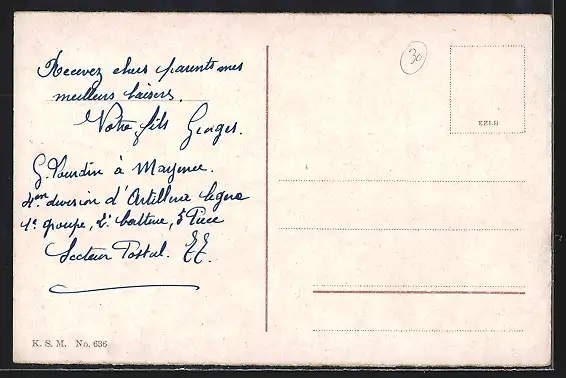 Recevez chers parents mes
meilleurs baisers.
Votre fils Georges.
G. à Mayence.
4em division d'Artillerie légère
1e groupe, 2e batterie, 5 Piece
Secteur Postal.
30
EZLB
K. S. M. No. 636